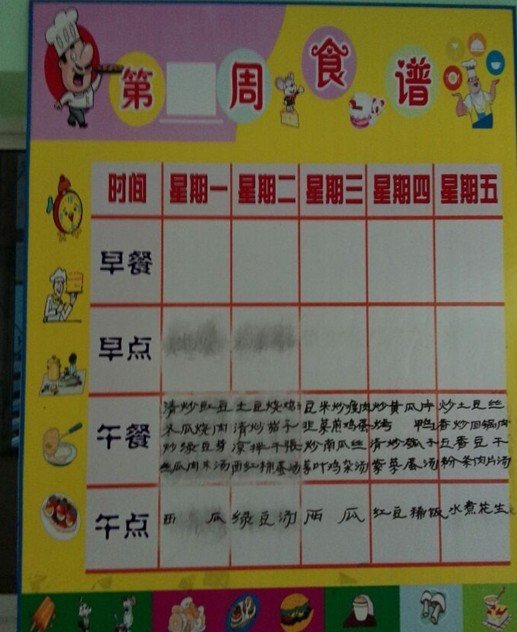 第 周食谱
时间 星期一 星期二 星期三 星期四 星期五
早餐
早点
清炒豇豆 土豆烧鸡 豆米炒瘦肉 炒黄瓜片 炒土豆丝
瓜烧肉 清炒茄子 韭菜煎鸡蛋 烤 鸭 炒回锅肉
午餐
炒绿豆芽 凉拌千张 炒南瓜丝 清炒 子 五香豆干
丝瓜肉末汤 西红柿蛋汤 叶鸡杂汤 紫菜蛋汤 粉条肉片汤
午点 西 瓜 绿豆汤 西 瓜 红豆稀饭 水煮花生